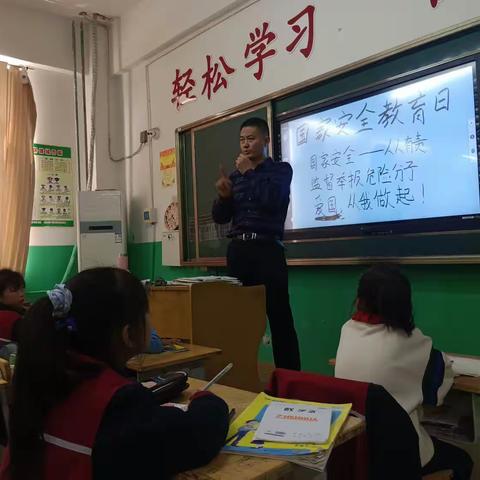 轻松学习
国家安全教育日
国家安全——人人有责
监督举报危险分子
爱国，从我做起！
数学